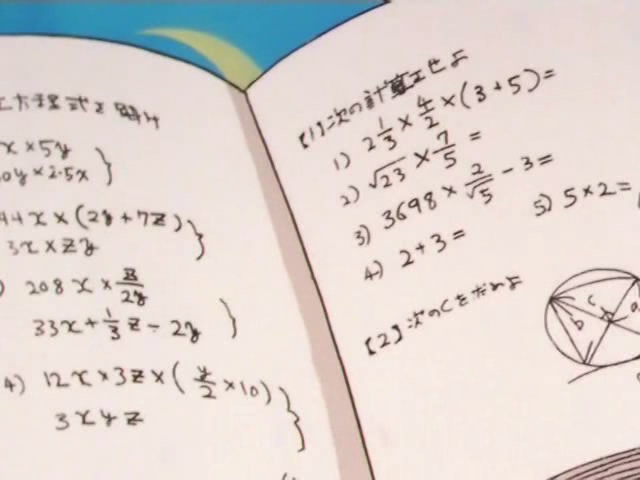 方程式を解け
x×5y
0y×2.5x
44x×(2y+7z)
3x×zy
208x×z/2y
33x+1/3z-2y
4) 12x×3z×(y/2×10)
3xyz
【1】次の計算をせよ
1) 2 1/3×4/2×(3+5)=
2) √23×7/5=
3) 3698×2/√5-3=
4) 2+3=
5) 5×2=
【2】次のcを求めよ
c
b
a